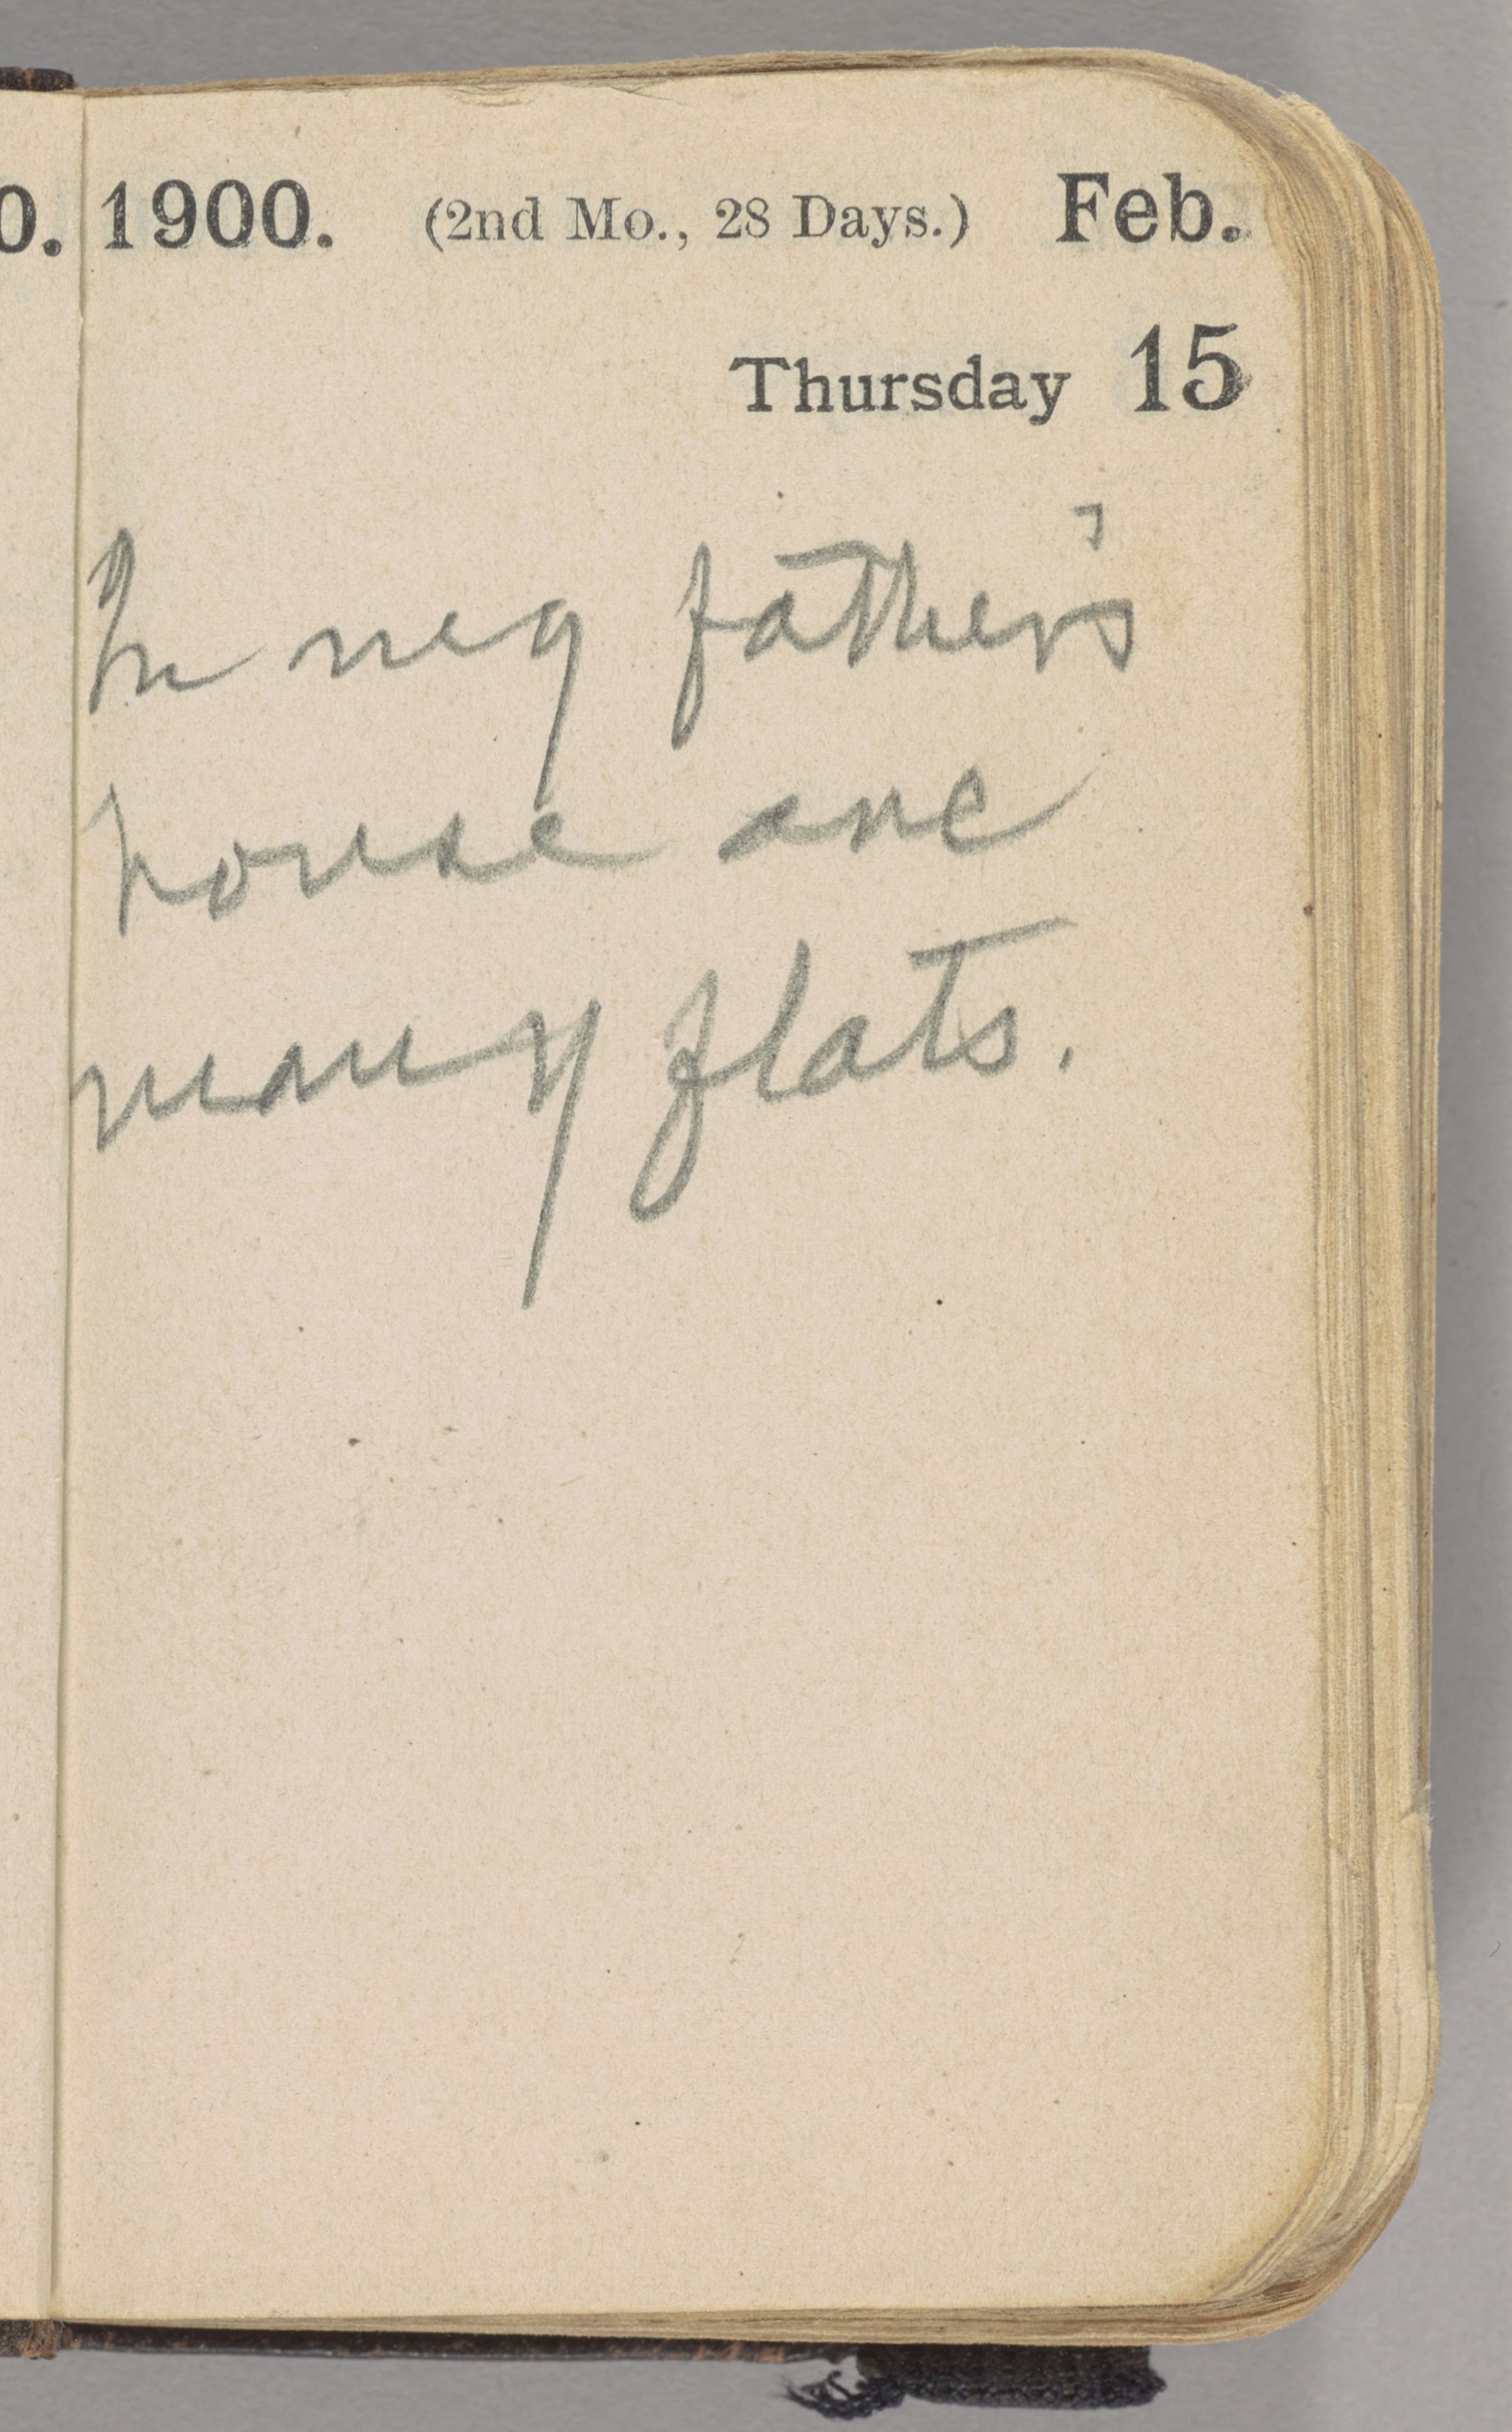 0. 1900. (2nd Mo., 28 Days.) Feb.
Thursday 15
In my father's
house are
many flats.